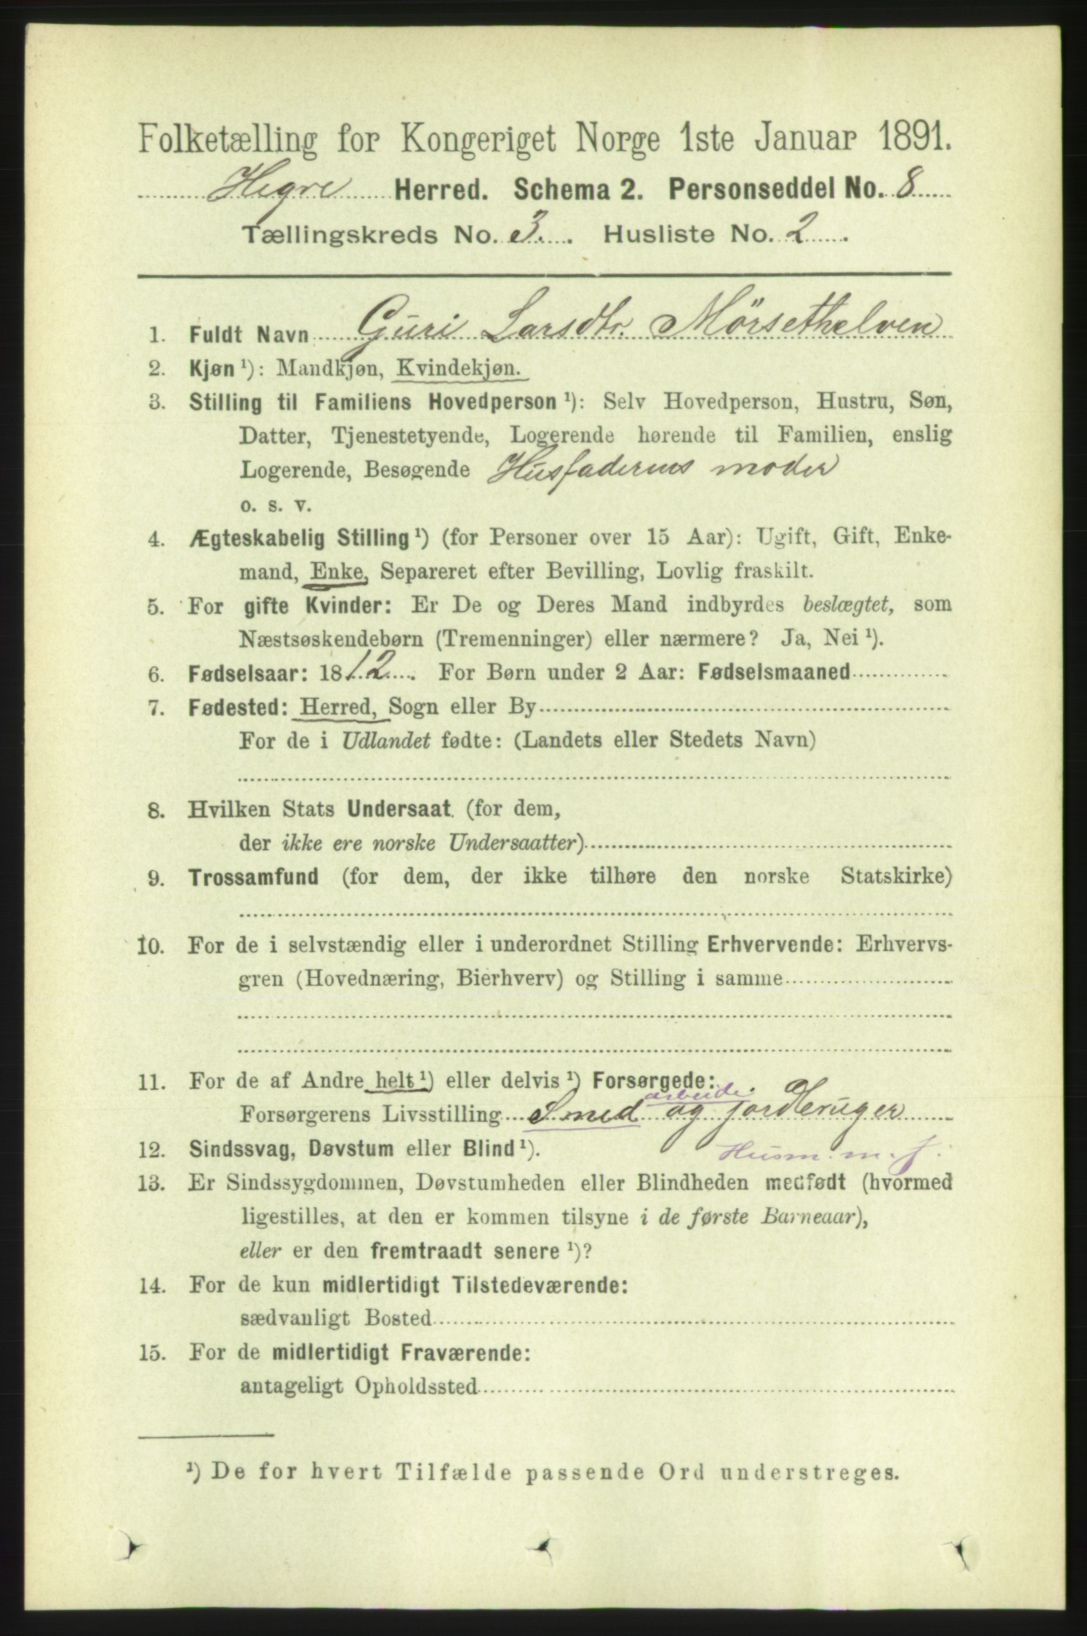 Folketælling for Kongeriget Norge 1ste Januar 1891.
Hegre Herred. Schema 2. Personseddel No. 8
Tællingskreds No. 3. Husliste No. 2
1. Fuldt Navn Guri Larsdtr. Mörsethelven
2. Kjøn ¹): Mandkjøn, Kvindekjøn.
3. Stilling til Familiens Hovedperson ¹): Selv Hovedperson, Hustru, Søn,
Datter, Tjenestetyende, Logerende hørende til Familien, enslig
Logerende, Besøgende Husfaderens moder
o. s. v.
4. Ægteskabelig Stilling ¹) (for Personer over 15 Aar): Ugift, Gift, Enke-
mand, Enke, Separeret efter Bevilling, Lovlig fraskilt.
5. For gifte Kvinder: Er De og Deres Mand indbyrdes beslægtet, som
Næstsøskendebørn (Tremenninger) eller nærmere? Ja, Nei ¹).
6. Fødselsaar: 1812. For Børn under 2 Aar: Fødselsmaaned
7. Fødested: Herred, Sogn eller By
For de i Udlandet fødte: (Landets eller Stedets Navn)
8. Hvilken Stats Undersaat (for dem,
der ikke ere norske Undersaatter)
9. Trossamfund (for dem, der ikke tilhøre den norske Statskirke)
10. For de i selvstændig eller i underordnet Stilling Erhvervende: Erhvervs-
gren (Hovednæring, Bierhverv) og Stilling i samme
11. For de af Andre helt ¹) eller delvis ¹) Forsørgede:
arbeide
Forsørgerens Livsstilling Smed og jordbruger
Husm. m. j.
12. Sindssvag, Døvstum eller Blind ¹).
13. Er Sindssygdommen, Døvstumheden eller Blindheden medfødt (hvormed
ligestilles, at den er kommen tilsyne i de første Barneaar),
eller er den fremtraadt senere ¹)?
14. For de kun midlertidigt Tilstedeværende:
sædvanligt Bosted
15. For de midlertidigt Fraværende:
antageligt Opholdssted
¹) De for hvert Tilfælde passende Ord understreges.